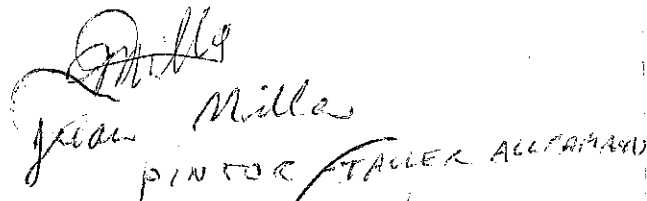 Milla
Juan Milla
PINTOR / TALLER ALLPAMANDA